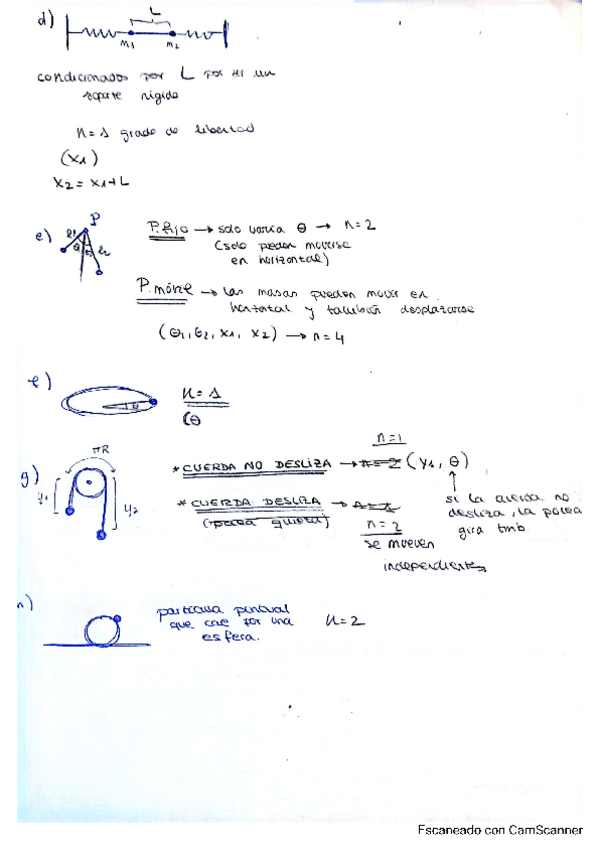 d)
L
m1 m2
condicionados por L por ser un
soporte rígido
n = 1 grado de libertad
(x1)
x2 = x1 + L
e)
P
θ1 θ2 l2
P. fijo → solo varía θ → n = 2
(solo pueden moverse
en horizontal)
P. móvil → las masas pueden mover en
horizontal y también desplazarse
(θ1, θ2, x1, x2) → n = 4
θ
n = 1
(θ
g)
πR
y1 y2
n = 1
* CUERDA NO DESLIZA → n = 2 (y1, θ)
si la cuerda no
desliza, la polea
gira tmb.
* CUERDA DESLIZA →
(polea quieta)
n = 2
se mueven
independientes
partícula puntual
que cae por una
esfera.
n = 2
Escaneado con CamScanner